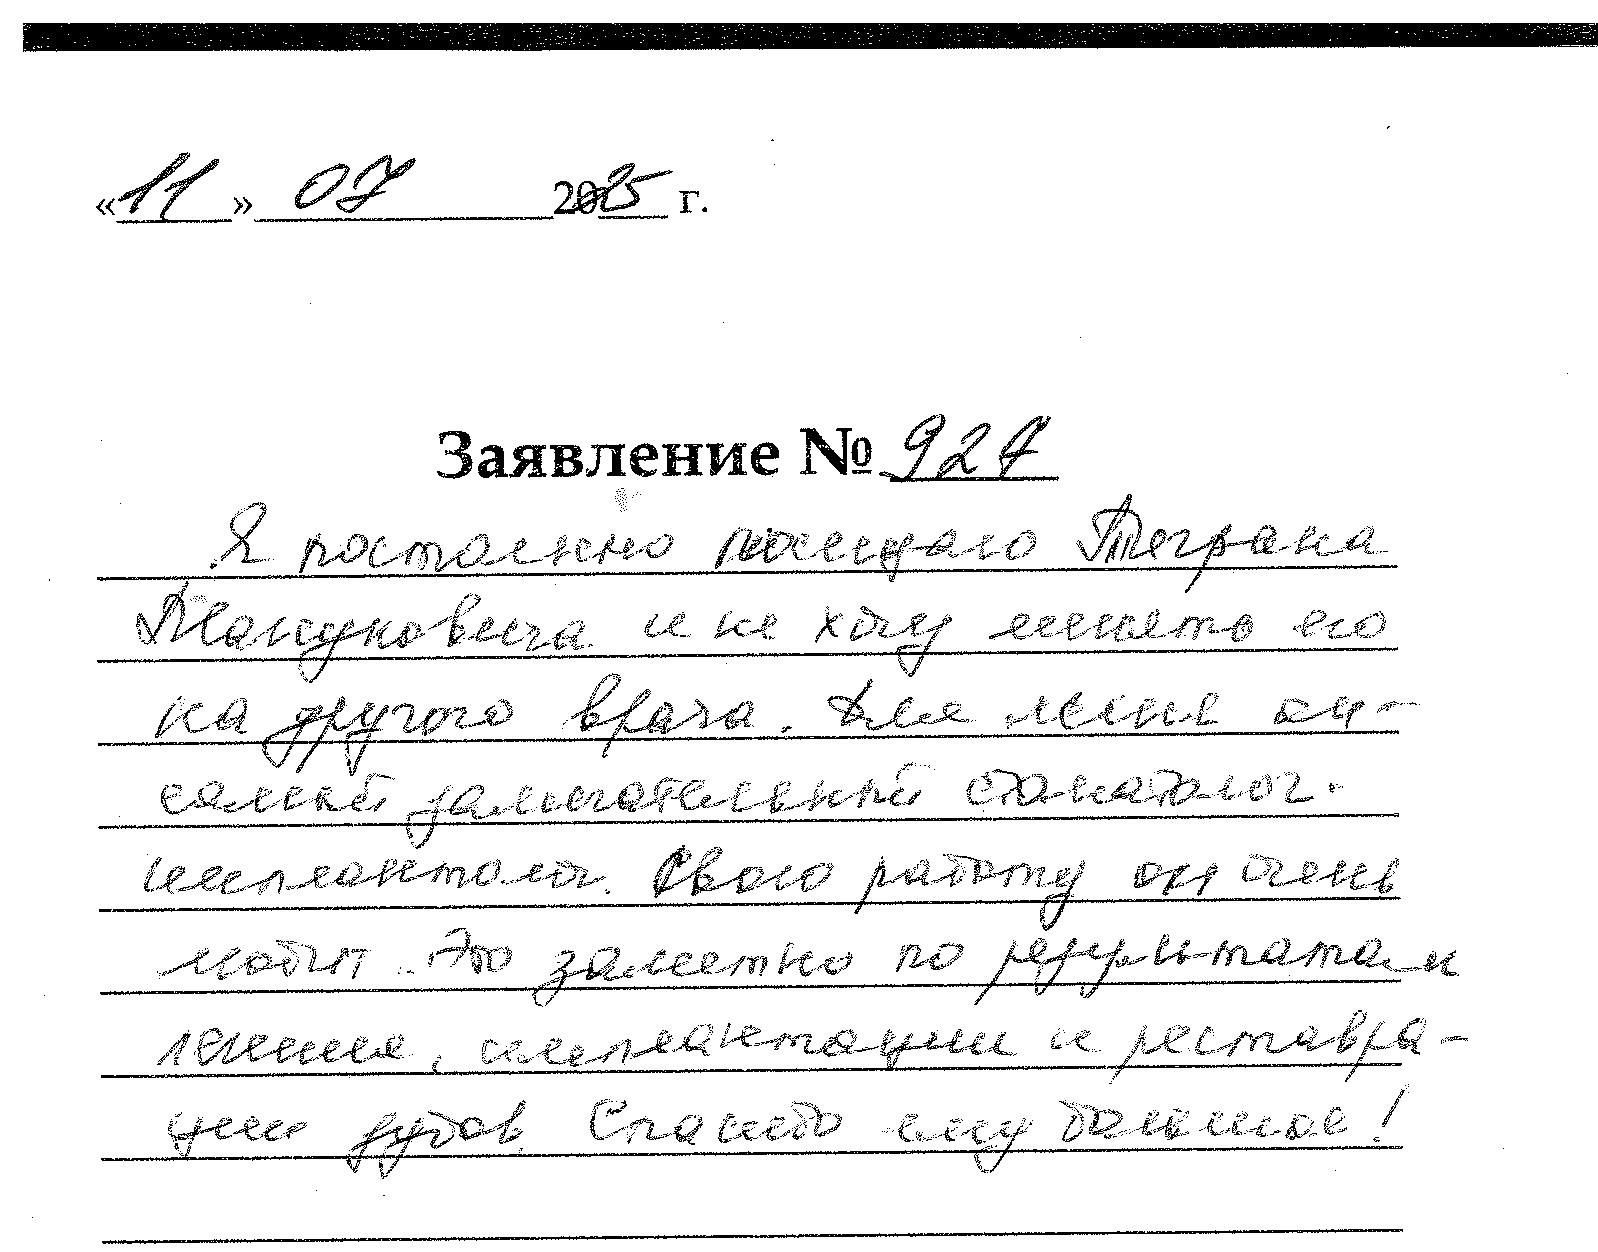 «11» 07 2025 г.
Заявление № 927
Я постоянно посещаю Тиграна
и не хочу менять его
на другого врача. Для меня он -
самый замечательный стоматолог-
имплантолог. Свою работу он очень
любит. Это заметно по результатам
лечения, имплантации и реставра-
ции зубов. Спасибо ему большое!